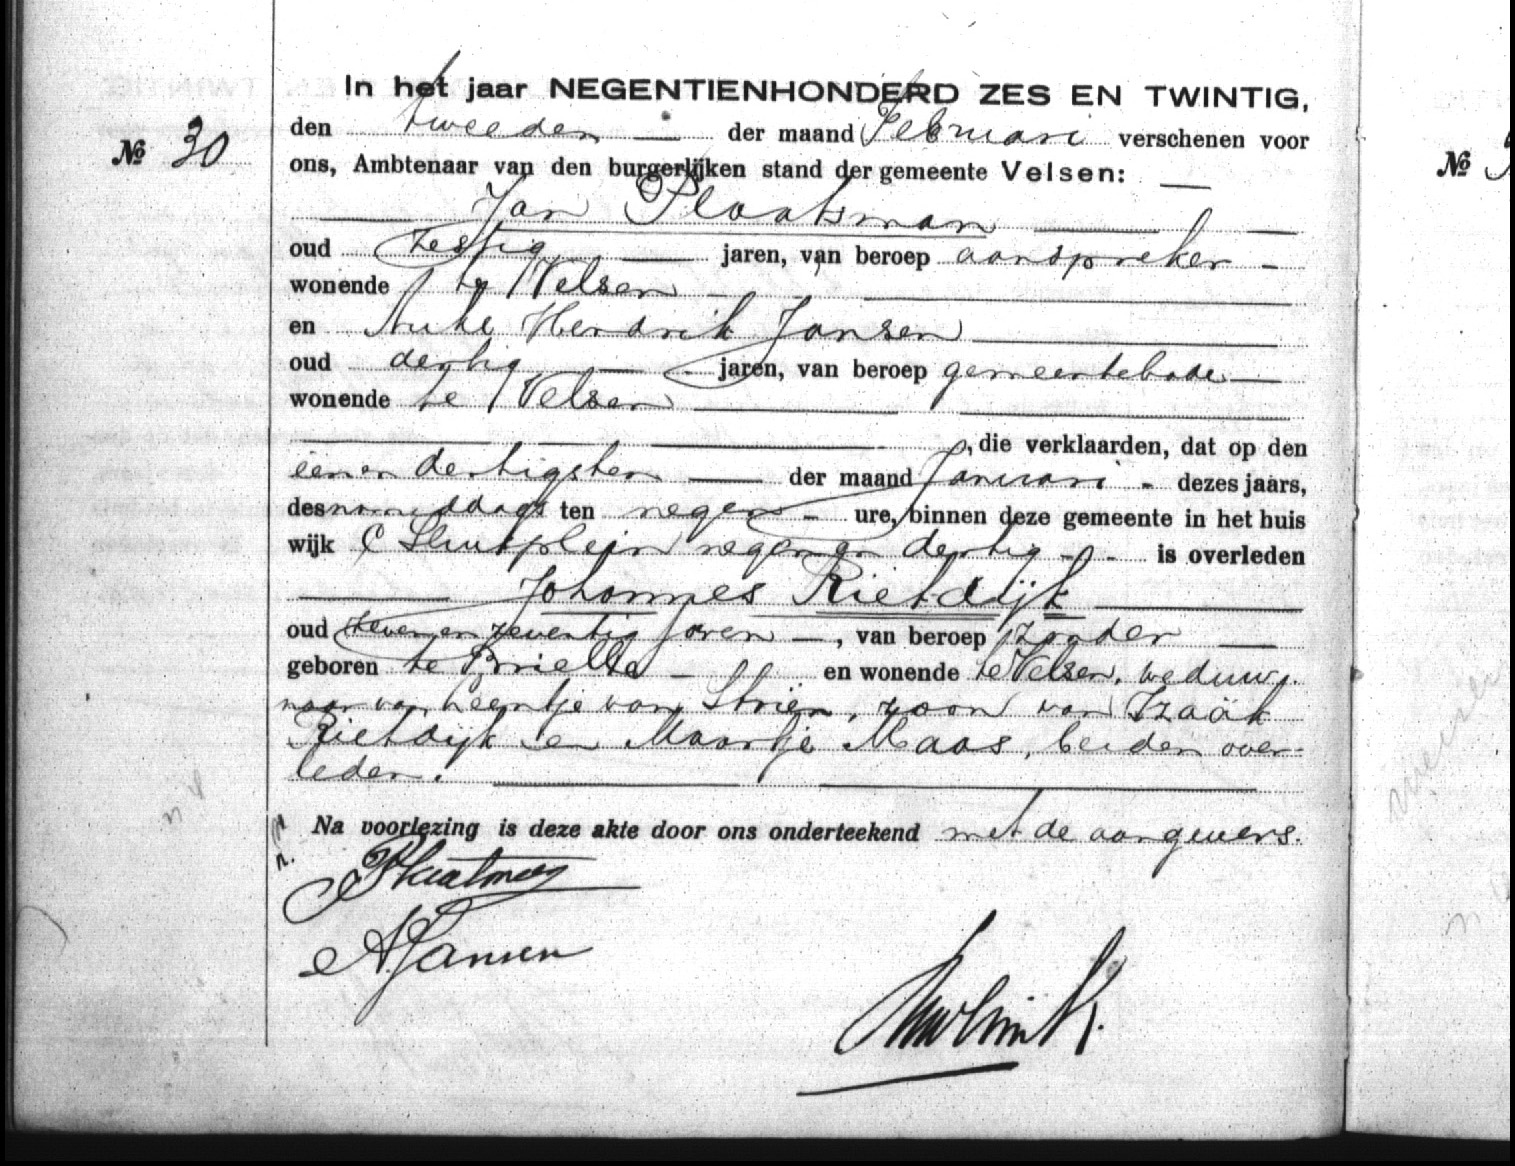 In het jaar NEGENTIENHONDERD ZES EN TWINTIG,
№ 30
den tweeden der maand Februari verschenen voor
ons, Ambtenaar van den burgerlijken stand der gemeente Velsen:
Jan Plaatsman
oud zestig jaren, van beroep aanspreker
wonende te Velsen
en Hendrik Jansen
oud dertig jaren, van beroep gemeentebode
wonende te Velsen
, die verklaarden, dat op den
een en dertigsten der maand Januari dezes jaars,
des namiddags ten negen ure, binnen deze gemeente in het huis
wijk C Sluisplein negen en dertig is overleden
Johannes Rietdijk
oud zeven en zeventig jaren, van beroep zonder
geboren te Brielle en wonende te Velsen, weduw-
naar van Leentje van Strien, zoon van Izaäk
Rietdijk en Maartje Maas, beiden over-
leden.
Na voorlezing is deze akte door ons onderteekend met de aangevers.
JPlaatsman
AHJansen
№